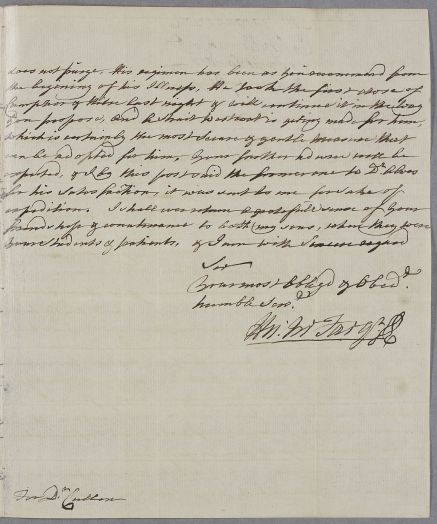 does not purge, His regimen has been as you recommend from
the begining of his Illness, He took the first dose of
Camphor & Nitre last night & will continue it in the way
you propose, and a Strait Westcoat is getting made for him,
which is certainly the most Secure & gentle measure that
can be adopted for him, Your further advice will be
expected, & by this post and the
for his satisfaction, it was sent to me for sake of
expedition. I shall ever retain a gratefull sense of your
friendship & countenance to both my sons, when they were
your Students & patients, & I am with Sincere regard
Sir
Your most Obliged & Obedt.
humble Servt.
For Dr. Cullen